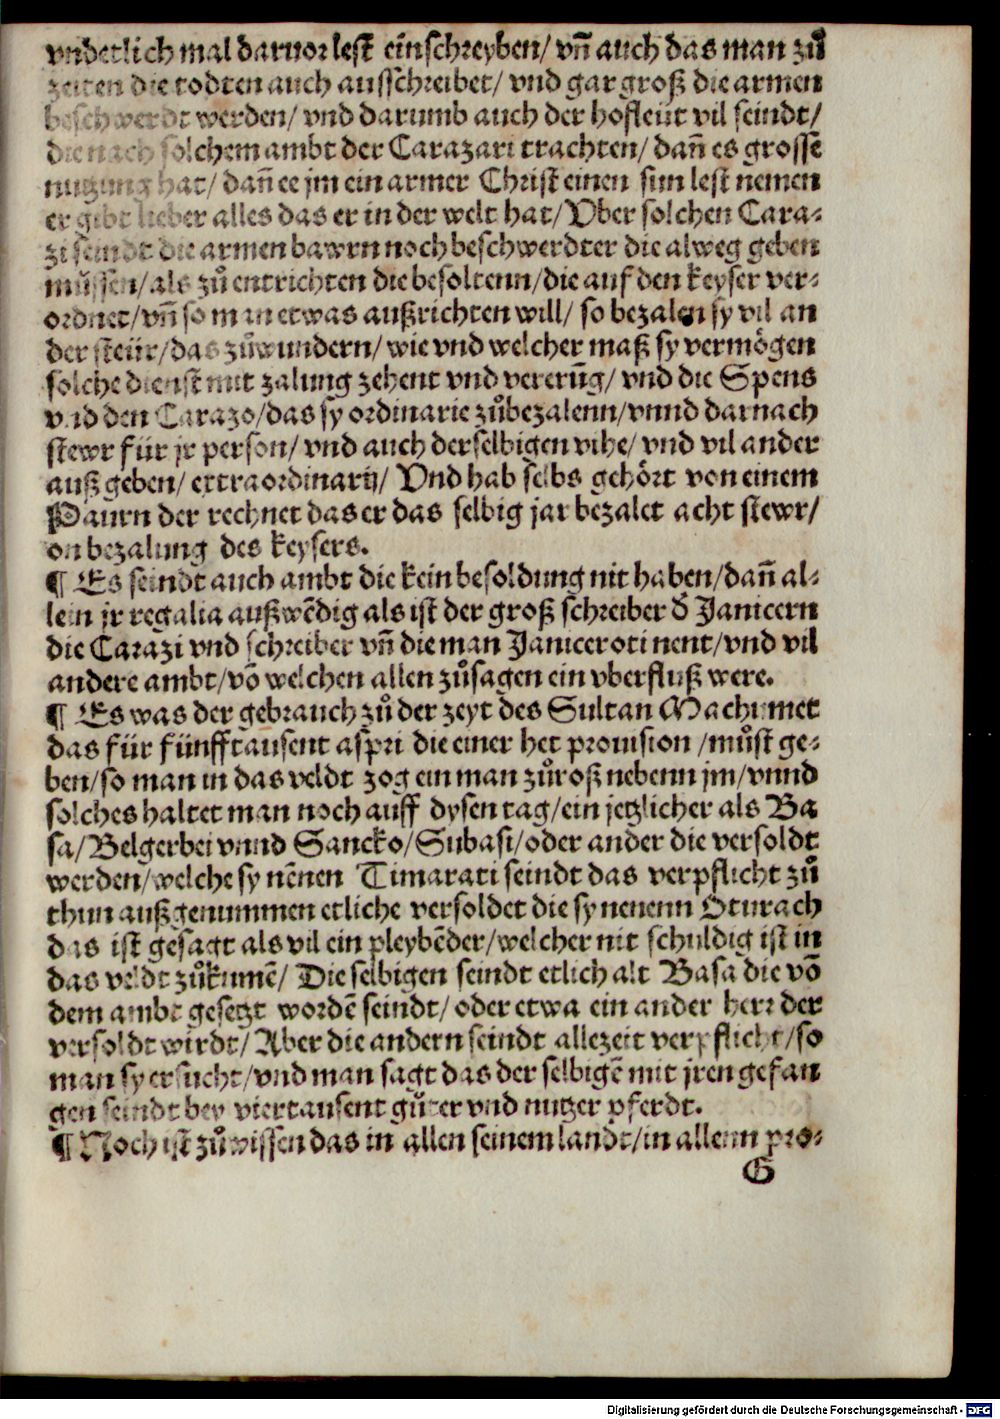 vnd etlich mal daruor lest einschreyben/ vñ auch das man zů
zeiten die todten auch ausschreibet/ vnd gar groß die armen
beschwerdt werden/ vnd darumb auch der hofleut vil seindt/
die nach solchem ambt der Carazari trachten/ dañ es grosse
nutzung hat/ dañ ee jm ein armer Christ einen sun lest nemen
er gibt lieber alles das er in der welt hat/ Vber solchen Cara-
zi seindt die armen bawrn noch beschwerdter die alweg geben
müssen/ als zů entrichten die besoltenn/ die auf den keyser ver-
ordnet/ vñ so man etwas außrichten will/ so bezalen sy vil an
der steür/ das zůwundern/ wie vnd welcher maß sy vermögen
solche dienst mit zalung zehent vnd vererũg/ vnd die Spens
vnd den Carazo/ das sy ordinarie zůbezalenn/ vnnd darnach
stewr für jr person/ vnd auch derselbigen vihe/ vnd vil ander
auß geben/ extraordinarij/ Vnd hab selbs gehört von einem
Paurn der rechnet das er das selbig jar bezalet acht stewr/
on bezalung des keysers.
¶ Es seindt auch ambt die kein besoldung nit haben/ dañ al-
lein jr regalia außwẽdig als ist der groß schreiber d̃ Janicern
die Carazi vnd schreiber vñ die man Janiceroti nent/ vnd vil
andere ambt/ võ welchen allen zůsagen ein vberfluß were.
¶ Es was der gebrauch zů der zeyt des Sultan Machumet
das für fünfftausent aspri die einer het prouision/ můst ge-
ben/ so man in das veldt zog ein man zů roß nebenn jm/ vnnd
solches haltet man noch auff dysen tag/ ein jetzlicher als Ba
sa/ Belgerbei vnnd Sancko/ Subasi/ oder ander die versoldt
werden/ welche sy nẽnen Timarati seindt das verpflicht zů
thun außgenummen etliche versoldet die sy nenenn Oturach
das ist gesagt als vil ein pleybẽder/ welcher nit schuldig ist in
das veldt zůkumẽ/ Die selbigen seindt etlich alt Basa die võ
dem ambt gesetzt wordẽ seindt/ oder etwa ein ander herr der
versoldt wirdt/ Aber die andern seindt allezeit verpflicht/ so
man sy ersucht/ vnd man sagt das der selbigẽ mit jren gefan
gen seindt bey viertausent gůter vnd nutzer pferdt.
¶ Noch ist zůwissen das in allen seinem landt/ in allenn pro-
G
Digitalisierung gefördert durch die Deutsche Forschungsgemeinschaft - DFG